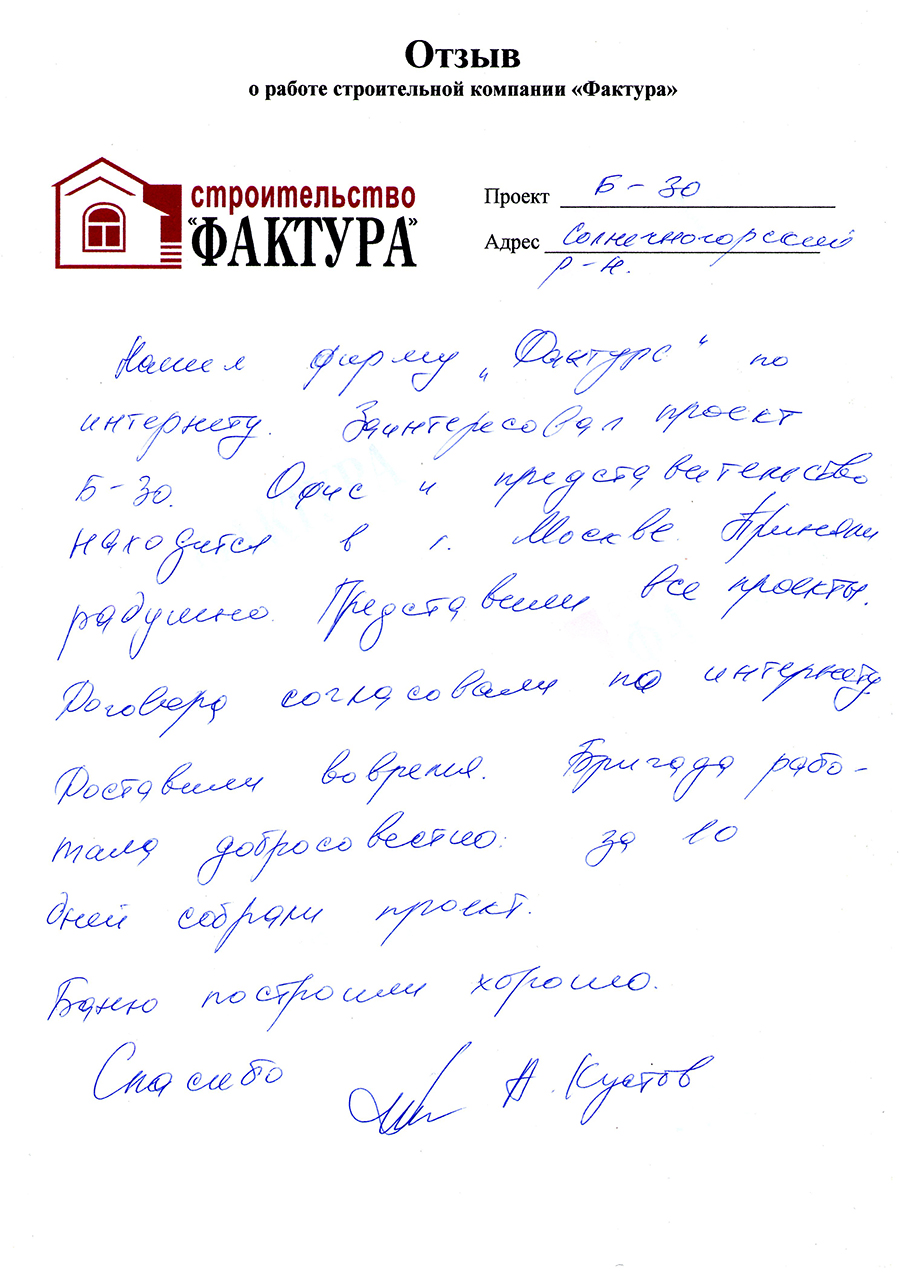 Отзыв
о работе строительной компании «Фактура»
строительство
"ФАКТУРА"
Проект Б-30
Адрес Солнечногорский
р-н.
Нашел фирму „Фактура" по
интернету. Заинтересовал проект
Б-30. Офис и представительство
находится в г. Москве. Приняли
радушно. Представили все проекты.
Договора согласовали по интернету
Доставили вовремя. Бригада рабо-
тала добросовестно: за 10
дней собрали проект.
Баню построили хорошо.
Спасибо А. Кустов